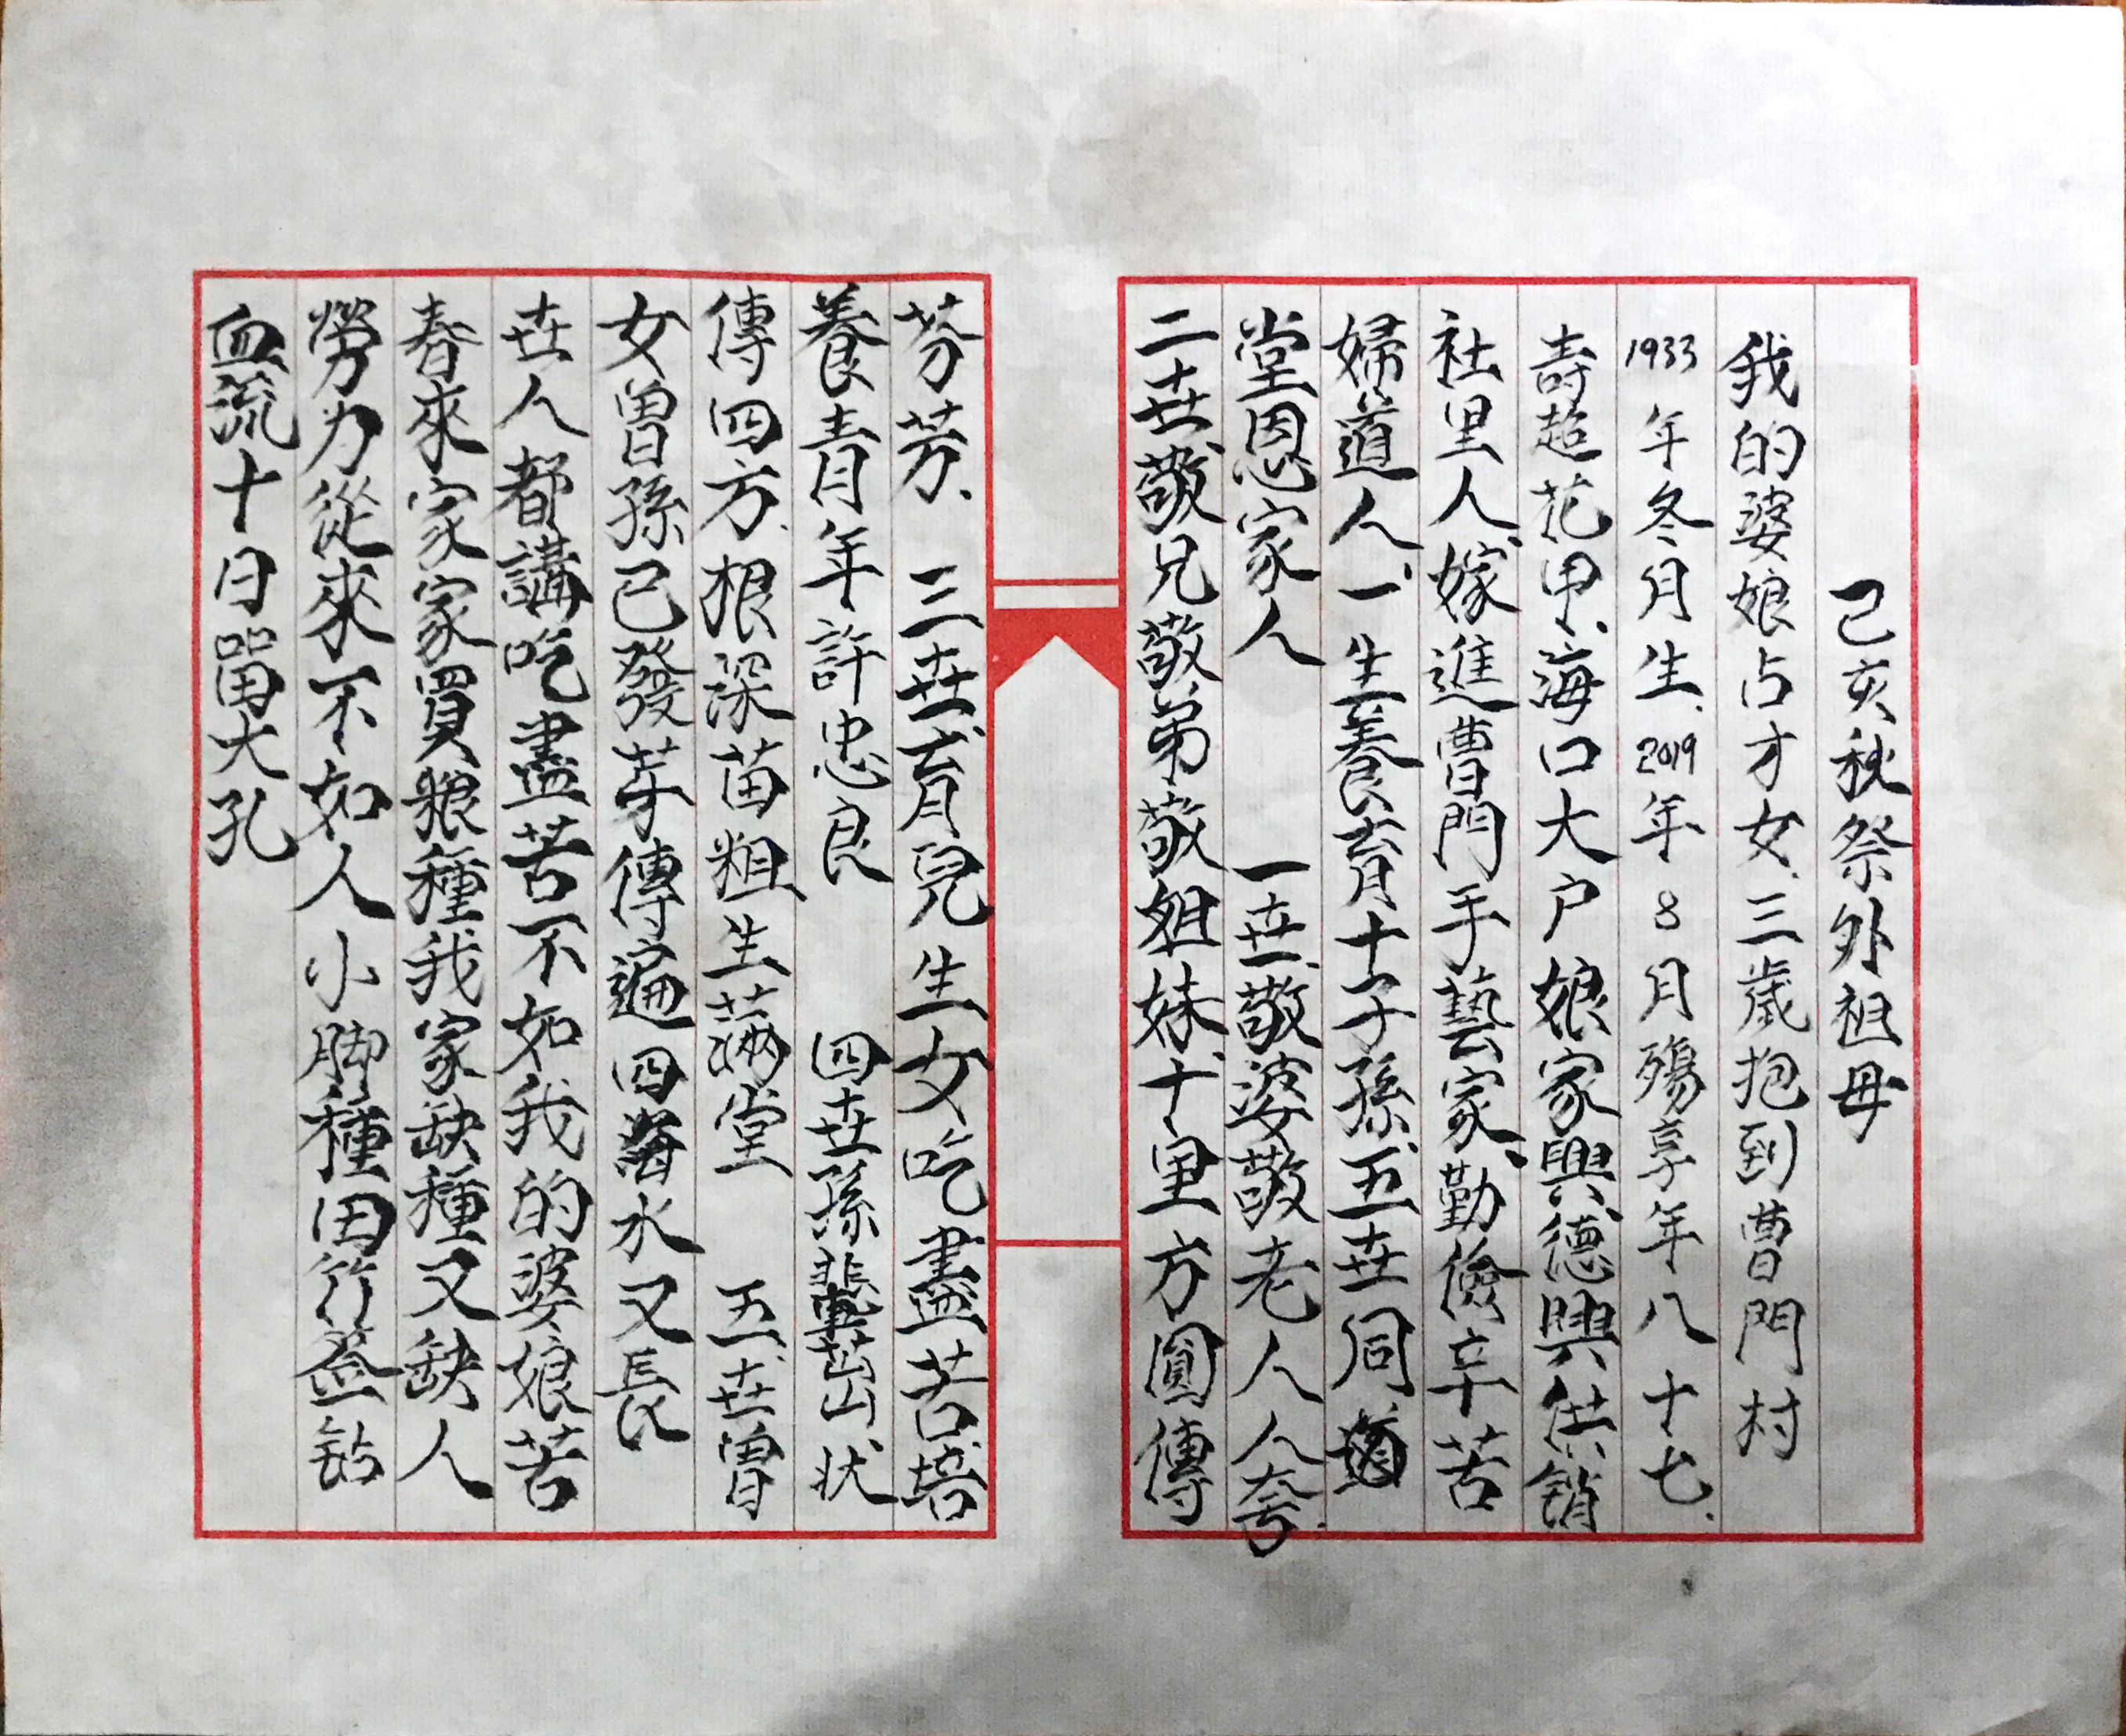 己亥秋祭外祖母
我的婆娘占才女.三歲抱到曹門村
1933年冬月生.2019年8月殤享年八十七.
壽超花甲.海口大户娘家興德興供销
社里人.嫁進曹門手藝家、勤儉辛苦
婦道人.一生養育十子孫.五世同
堂恩家人 一世敬婆敬老人人夸.
二世敬兄敬弟敬姐妹十里方圓傳
芬芳. 三世育兒生女吃盡苦培
養青年許忠良 四世孫輩茁状
傳四方.根深苗粗生满堂 五世曾
女曾孫已發芽傳遍四海水又長
世人都講吃盡苦不如我的婆娘苦
春來家家買粮種我家缺種又缺人
勞力從來不如人小脚種田竹签钻
血流十日留大孔